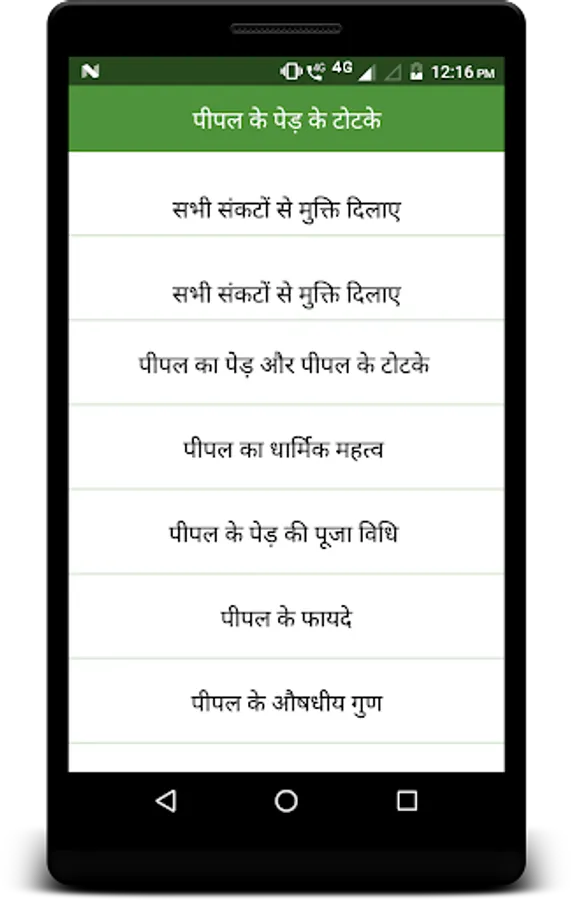 4G 4G 12:16 PM
पीपल के पेड़ के टोटके
सभी संकटों से मुक्ति दिलाए
सभी संकटों से मुक्ति दिलाए
पीपल का पेड़ और पीपल के टोटके
पीपल का धार्मिक महत्व
पीपल के पेड़ की पूजा विधि
पीपल के फायदे
पीपल के औषधीय गुण